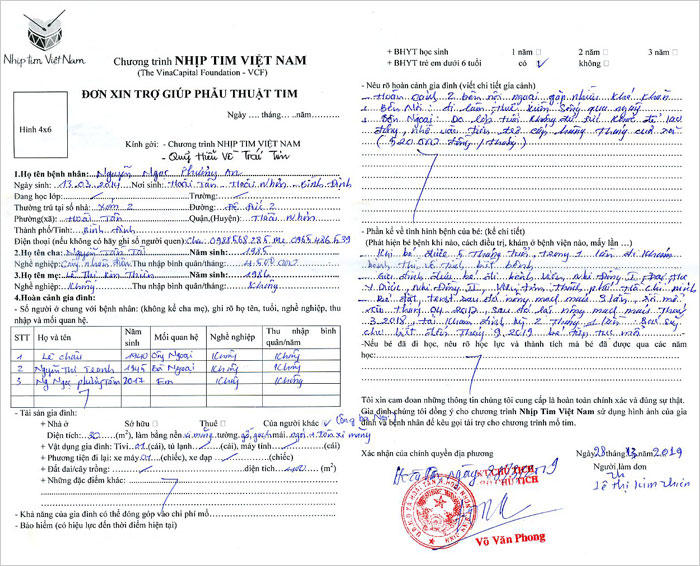 Nhịp tim Việt Nam
Chương trình NHỊP TIM VIỆT NAM
(The VinaCapital Foundation - VCF)
ĐƠN XIN TRỢ GIÚP PHẪU THUẬT TIM
Ngày .... tháng.... năm..........
Hình 4x6
Kính gởi: - Chương trình NHỊP TIM VIỆT NAM
- Quỹ Hiểu Về Trái Tim
1.Họ tên bệnh nhân: Nguyễn Ngọc Phương An
Ngày sinh: 13.03.2014 Nơi sinh: Hoài Tân Hoài Nhơn Bình Định
Đang học lớp: Trường:
Thường trú tại số nhà: Xóm 2 Đường: Đệ Đức 2
Phường(xã): Hoài Tân Quận,(Huyện): Hoài Nhơn
Thành phố/Tỉnh: Bình Định
Điện thoại (nếu không có hãy ghi số người quen): Cha 0988568285 Mẹ 0965486539
2.Họ tên cha: Nguyễn Tấn Tài Năm sinh: 1985
Nghề nghiệp: Thu nhập bình quân/tháng:
3.Họ tên mẹ: Lê Thị Kim Thiên Năm sinh: 1986
Nghề nghiệp: Không Thu nhập bình quân/tháng: Không
4.Hoàn cảnh gia đình:
- Số người ở chung với bệnh nhân: (không kể cha mẹ), ghi rõ họ tên, tuổi, nghề nghiệp, thu
nhập và mối quan hệ.
STT Họ và tên Năm sinh Mối quan hệ Nghề nghiệp Thu nhập bình quân/năm
1 Lê Châu 1940 Ông Ngoại Không Không
2 Nguyễn Thị 1945 Bà Ngoại Không Không
3 Ng Ngọc Phương Tâm 2017 Em Không Không
- Tài sản gia đình:
+ Nhà ở Sở hữu □ Thuê □ Của người khác ✓ (Ông bà Ngoại)
Diện tích: 30 (m²), làm bằng nền xi măng, tường gỗ, gạch mái ngói + tôn xi măng
+ Vật dụng gia đình: Tivi 01 (cái), tủ lạnh (cái), máy tính (cái)
+ Phương tiện đi lại: xe máy 01 (chiếc), xe đạp (chiếc)
+ Đất đai/cây trồng: diện tích (m²)
+ Những đặc điểm khác:
- Khả năng của gia đình có thể đóng góp vào chi phí mổ
- Bảo hiểm (có hiệu lực đến thời điểm hiện tại)
+ BHYT học sinh 1 năm □ 2 năm □ 3 năm □
+ BHYT trẻ em dưới 6 tuổi có ✓ không □
- Nêu rõ hoàn cảnh gia đình (viết chi tiết gia cảnh)
Hoàn cảnh 2 bên nội ngoại gặp nhiều khó khăn
- Bên Nội: đi làm thuê kiếm sống qua ngày
- Bên Ngoại: Do lớn tuổi không đủ sức khoẻ để lao
động, nhờ vào tiền trợ cấp hàng tháng của xã
(520.000 đồng / tháng)
- Phần kể về tình hình bệnh của bé: (kể chi tiết)
(Phát hiện bé bệnh khi nào, cách điều trị, khám ở bệnh viện nào, mấy lần ...)
Khi bé được 5 tháng tuổi trong 1 lần đi khám
bệnh thì
Gia đình đưa bé đi bệnh viện Nhi Đồng I, Đại học
Y Dược, Nhi Đồng II, Viện tim thành phố Hồ Chí Minh
3.2018, tái khám định kỳ 2 tháng 1 lần. Bác sỹ
cho biết đến tháng 9.2019 bé tiếp tục mổ
- Nếu bé đã đi học, nêu rõ học lực và thành tích mà bé đã được qua các năm
học:
Tôi xin cam đoan những thông tin chúng tôi cung cấp là hoàn toàn chính xác và đúng sự thật.
Gia đình chúng tôi đồng ý cho chương trình Nhịp Tim Việt Nam sử dụng hình ảnh của gia
đình và bệnh nhân để kêu gọi tài trợ cho chương trình mổ tim.
Xác nhận của chính quyền địa phương
Ngày 28 tháng 3 năm 2019
Người làm đơn
Lê Thị Kim Thiên
KT. CHỦ TỊCH
PHÓ CHỦ TỊCH
Võ Văn Phong